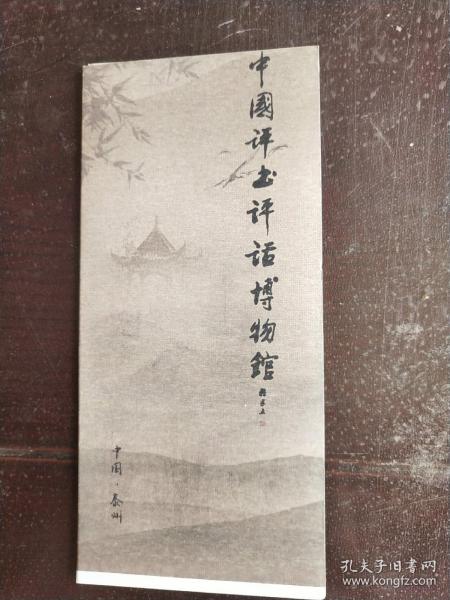 中國评书评话博物館
中国·泰州
孔夫子旧书网
www.kongfz.com